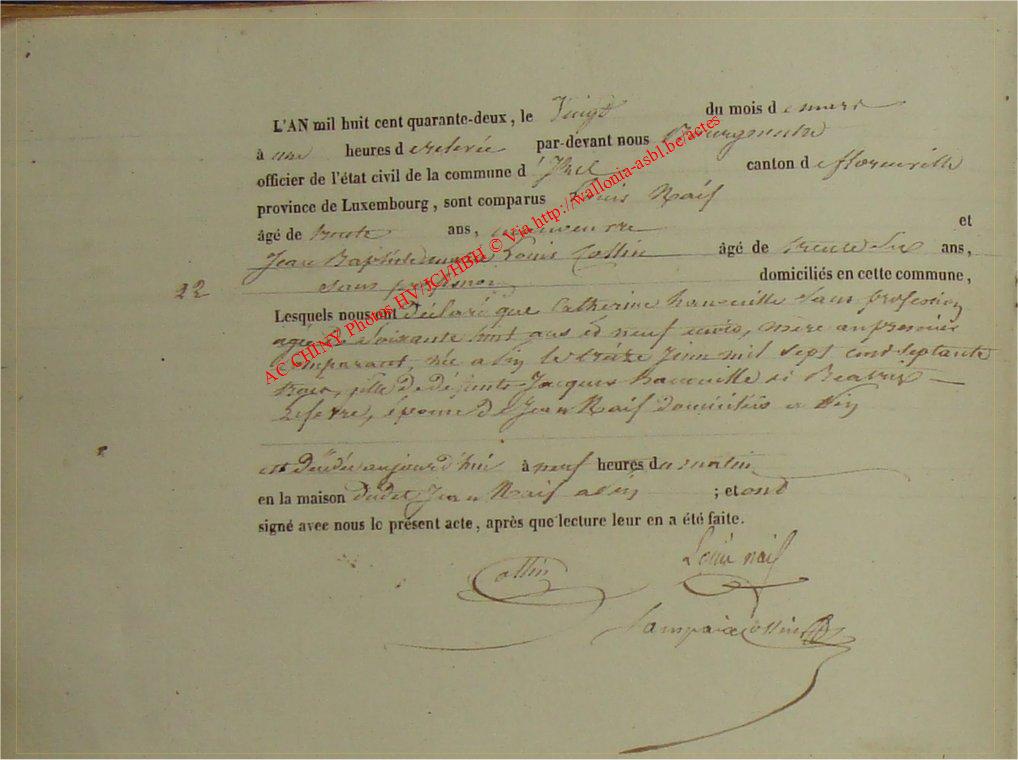 L'AN mil huit cent quarante-deux, le Vingt du mois de mars
à une heures de relevée par-devant nous Bourgmestre
officier de l'état civil de la commune d'Izel canton de florenville
province de Luxembourg, sont comparus Louis Naif
âgé de trente ans, et
Jean Baptiste Louis Collin âgé de trente Six ans,
22 sans profession domiciliés en cette commune,
Lesquels nous ont déclaré que Catherine hanouille Sans profession
agée Soixante huit ans et neuf mois, mere au premier
comparant, née a Pin le treize Juin mil sept cent septante
trois, fille de défunts Jacques Hanouille et Beatrix
Lefevre, épouse de Jean Naif domiciliés a Pin
est décédée aujourd'hui à neuf heures du matin
en la maison dudit Jean Naif a Pin ; et ont
signé avec nous le présent acte, après que lecture leur en a été faite.
Louis naif
Collin
Collin
AC CHINY Photos HV/JCJ/HBH © Via http://wallonia-asbl.be/actes